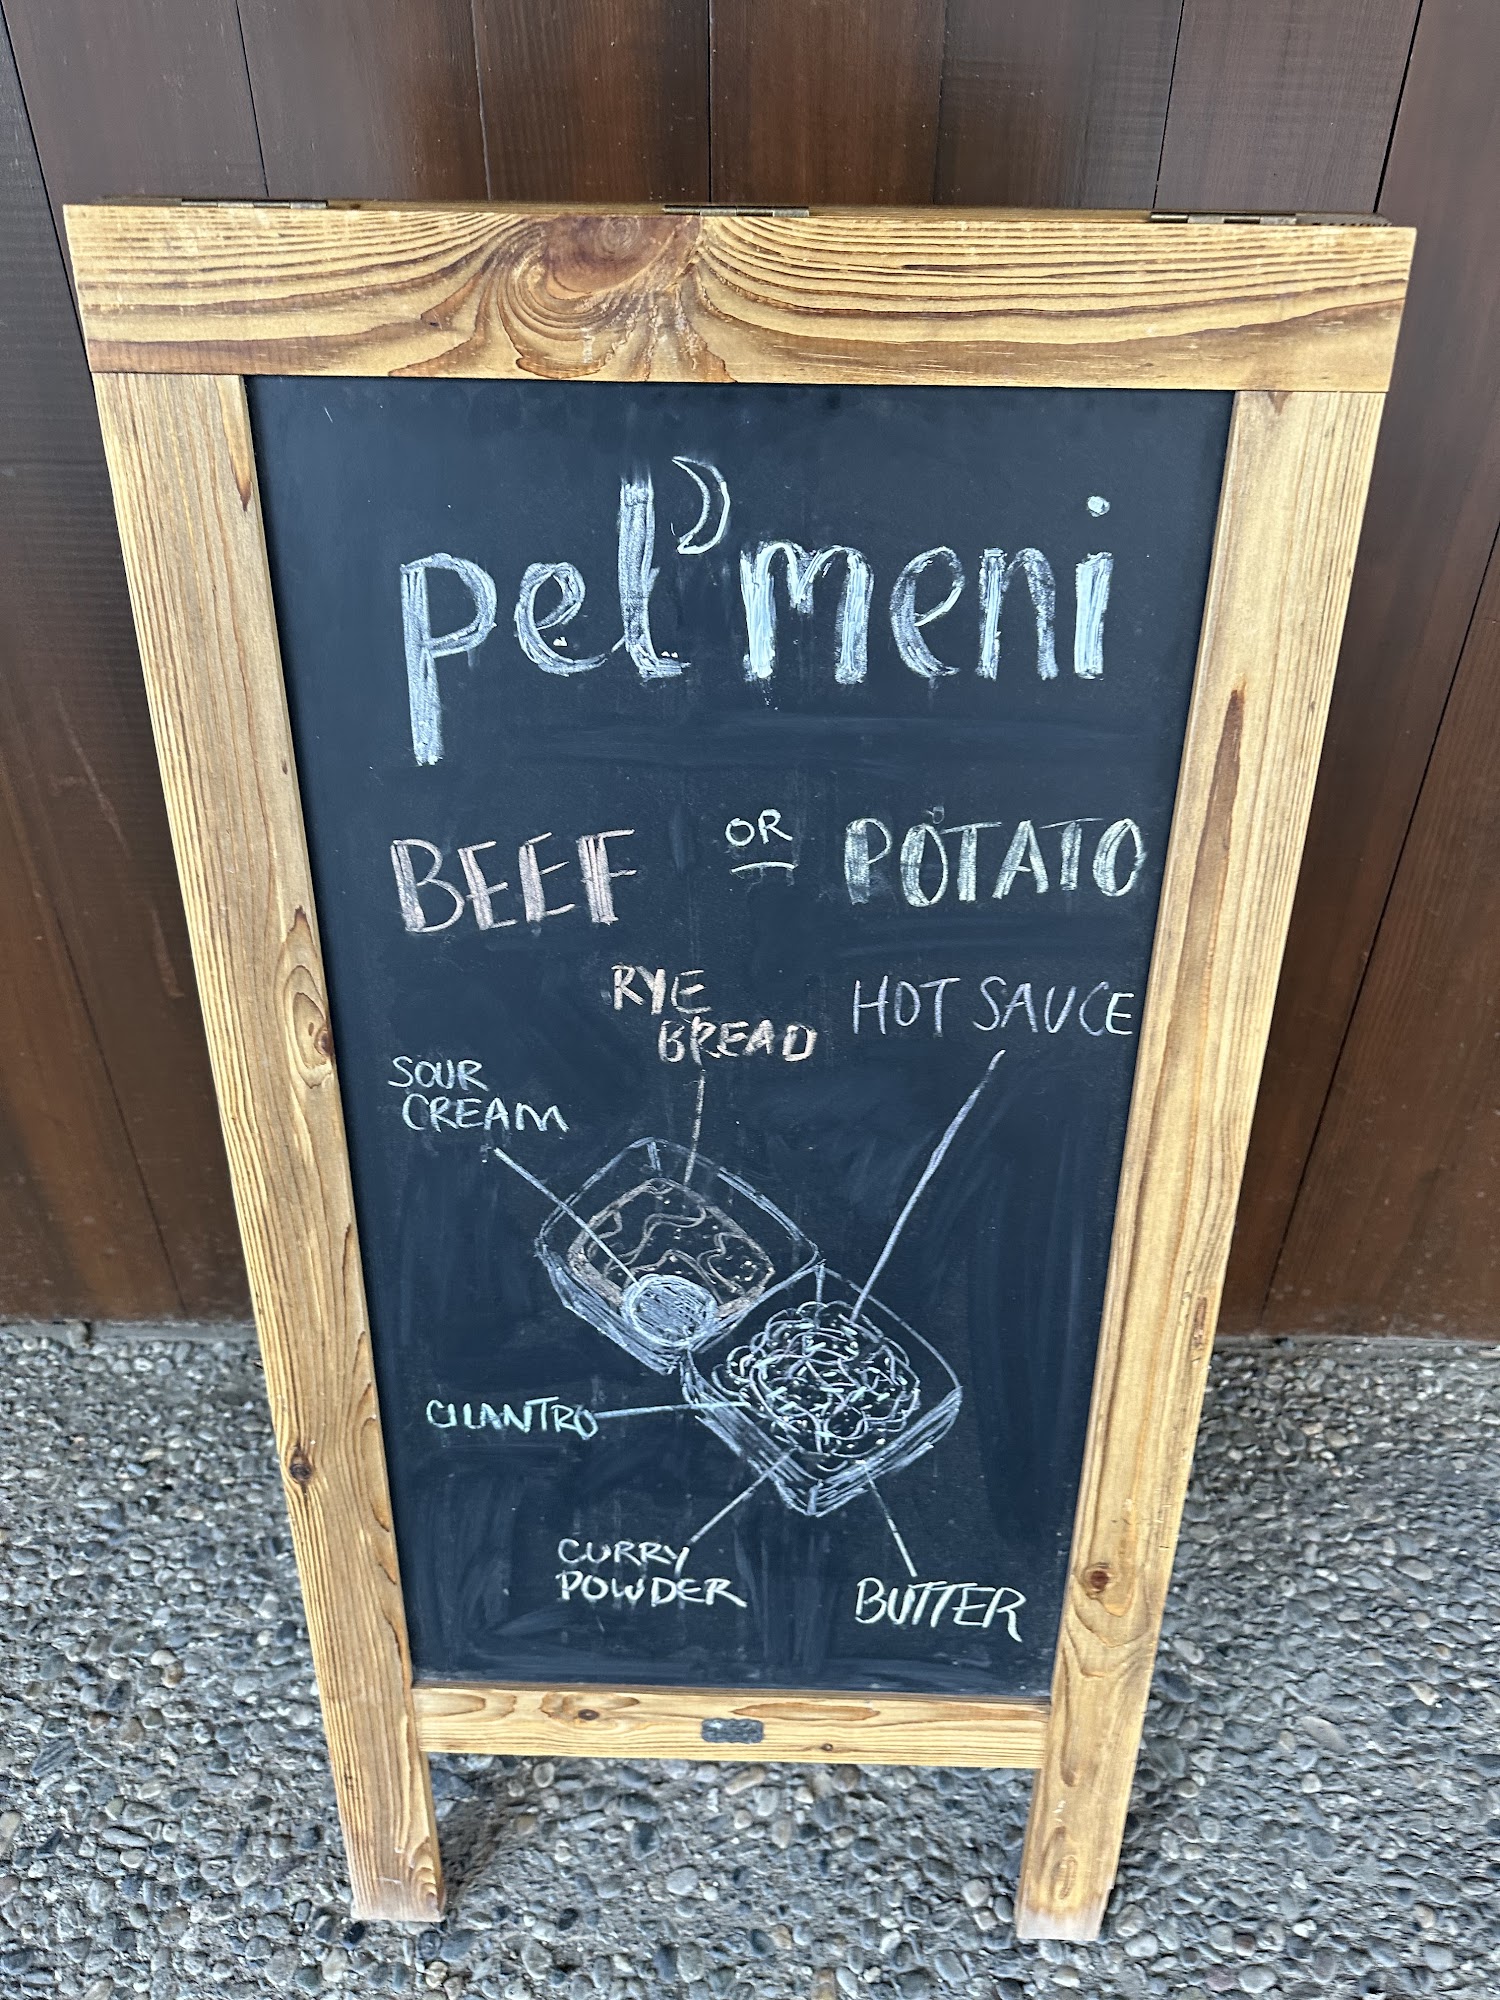 pel'meni
BEEF OR POTATO
RYE
BREAD
HOT SAUCE
SOUR
CREAM
CILANTRO
CURRY
POWDER
BUTTER